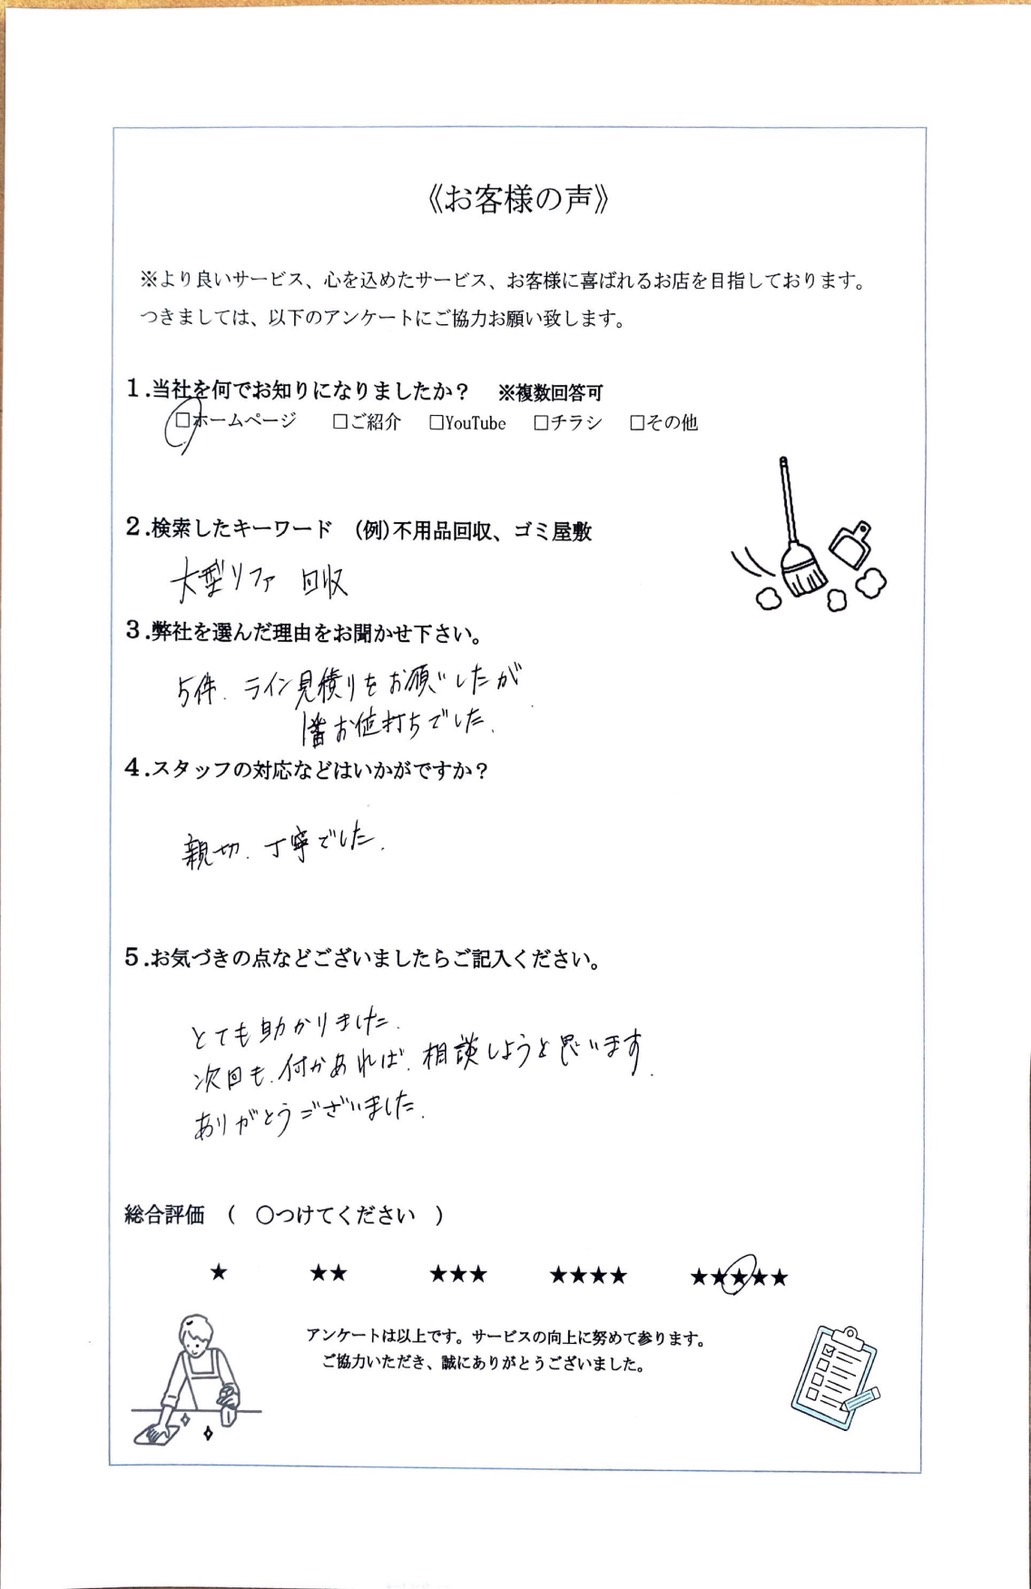 《お客様の声》
※より良いサービス、心を込めたサービス、お客様に喜ばれるお店を目指しております。
つきましては、以下のアンケートにご協力お願い致します。
1.当社を何でお知りになりましたか？ ※複数回答可
□ホームページ □ご紹介 □YouTube □チラシ □その他
2.検索したキーワード (例)不用品回収、ゴミ屋敷
大型ソファ 回収
3.弊社を選んだ理由をお聞かせ下さい。
5件、ライン見積りをお願いしたが
1番お値打ちでした。
4.スタッフの対応などはいかがですか？
親切、丁寧でした。
5.お気づきの点などございましたらご記入ください。
とても助かりました。
次回も、何かあれば、相談しようと思います。
ありがとうございました。
総合評価 ( ○つけてください )
★ ★★ ★★★ ★★★★ ★★★★★
アンケートは以上です。サービスの向上に努めて参ります。
ご協力いただき、誠にありがとうございました。